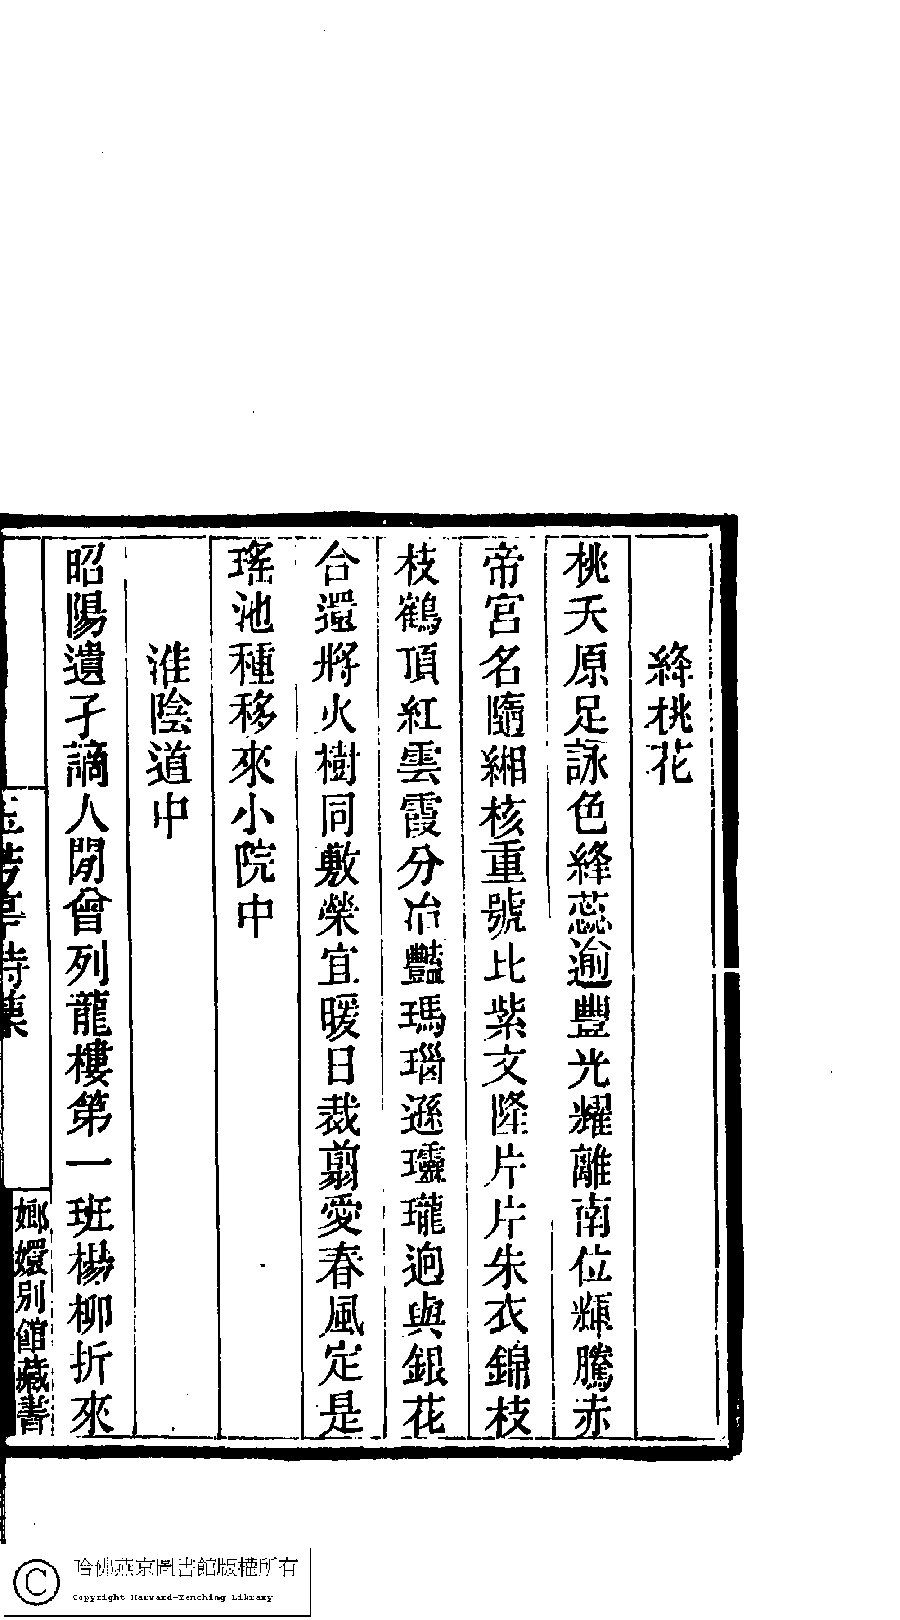 絳桃花
桃夭原足詠色絳蕊逾豐光耀離南位輝騰赤
帝宮名隨緗核重號比紫文隆片片朱衣錦枝
枝鶴頂紅雲霞分冶豔瑪瑙遜瓏迥與銀花
合還將火樹同敷榮宜暖日裁翦愛春風定是
瑤池種移來小院中
淮陰道中
昭陽遺孑謫人閒曾列龍樓第一班楊柳折來
亭詩
嫏嬛別館藏書
哈佛燕京圖書館版權所有
Copyright Harvard-Yenching Library